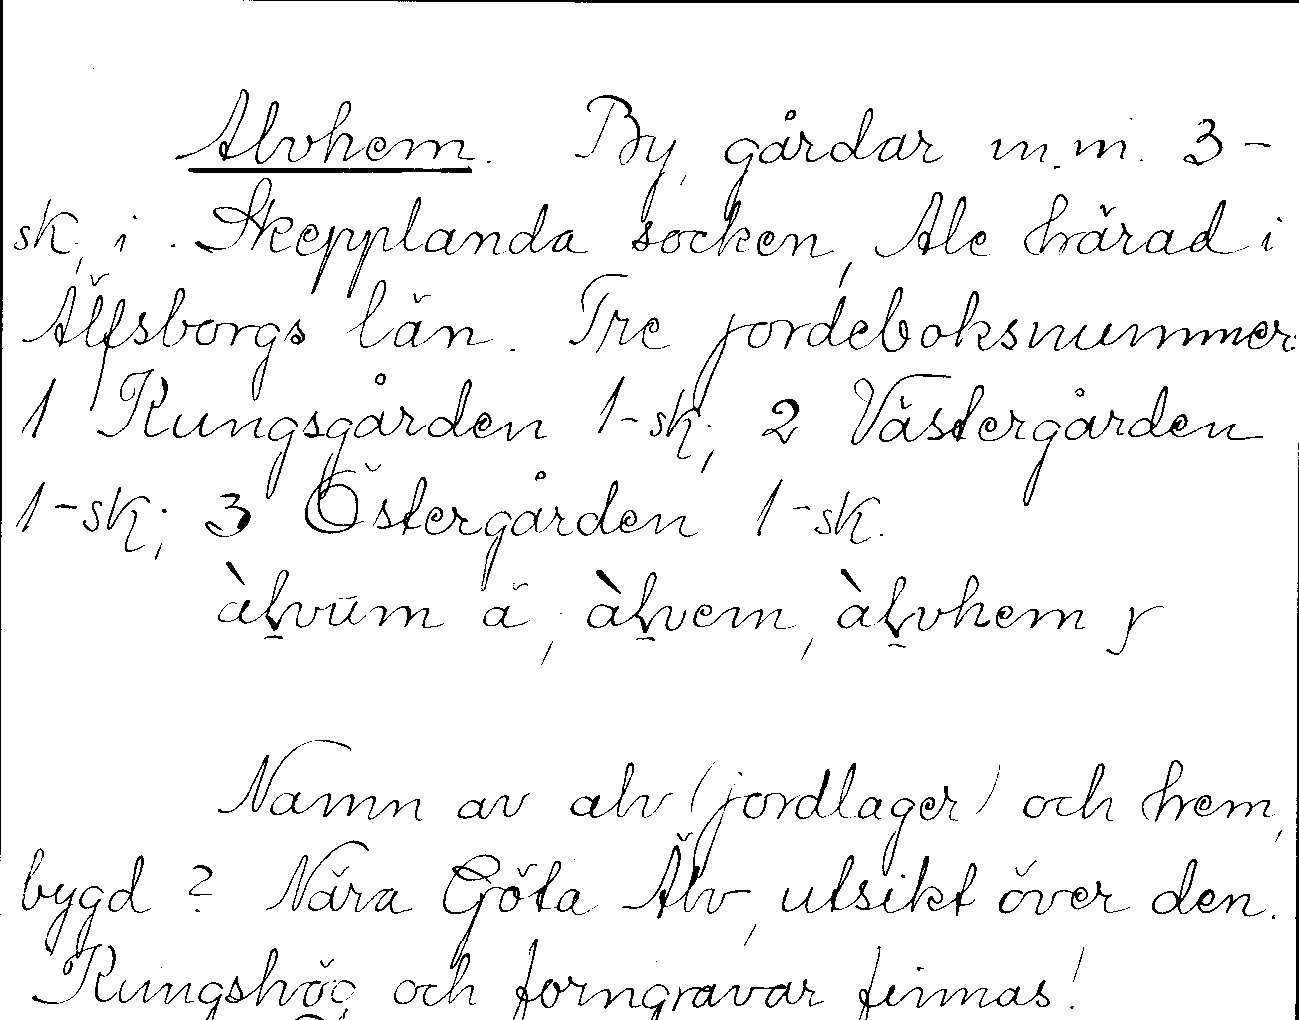 Alvhem. By, gårdar m.m. 3-
sk, i Skepplanda socken, Ale härad i
Älfsborgs län. Tre jordeboksnummer:
1 Kungsgården 1-sk; 2 Västergården
1-sk; 3 Östergården 1-sk.
àḻvūm ä, àḻvem, àḻvhem y
Namn av alv (jordlager) och hem,
bygd? Nära Göta Älv, utsikt över den.
Kungshög och forngravar finnas!